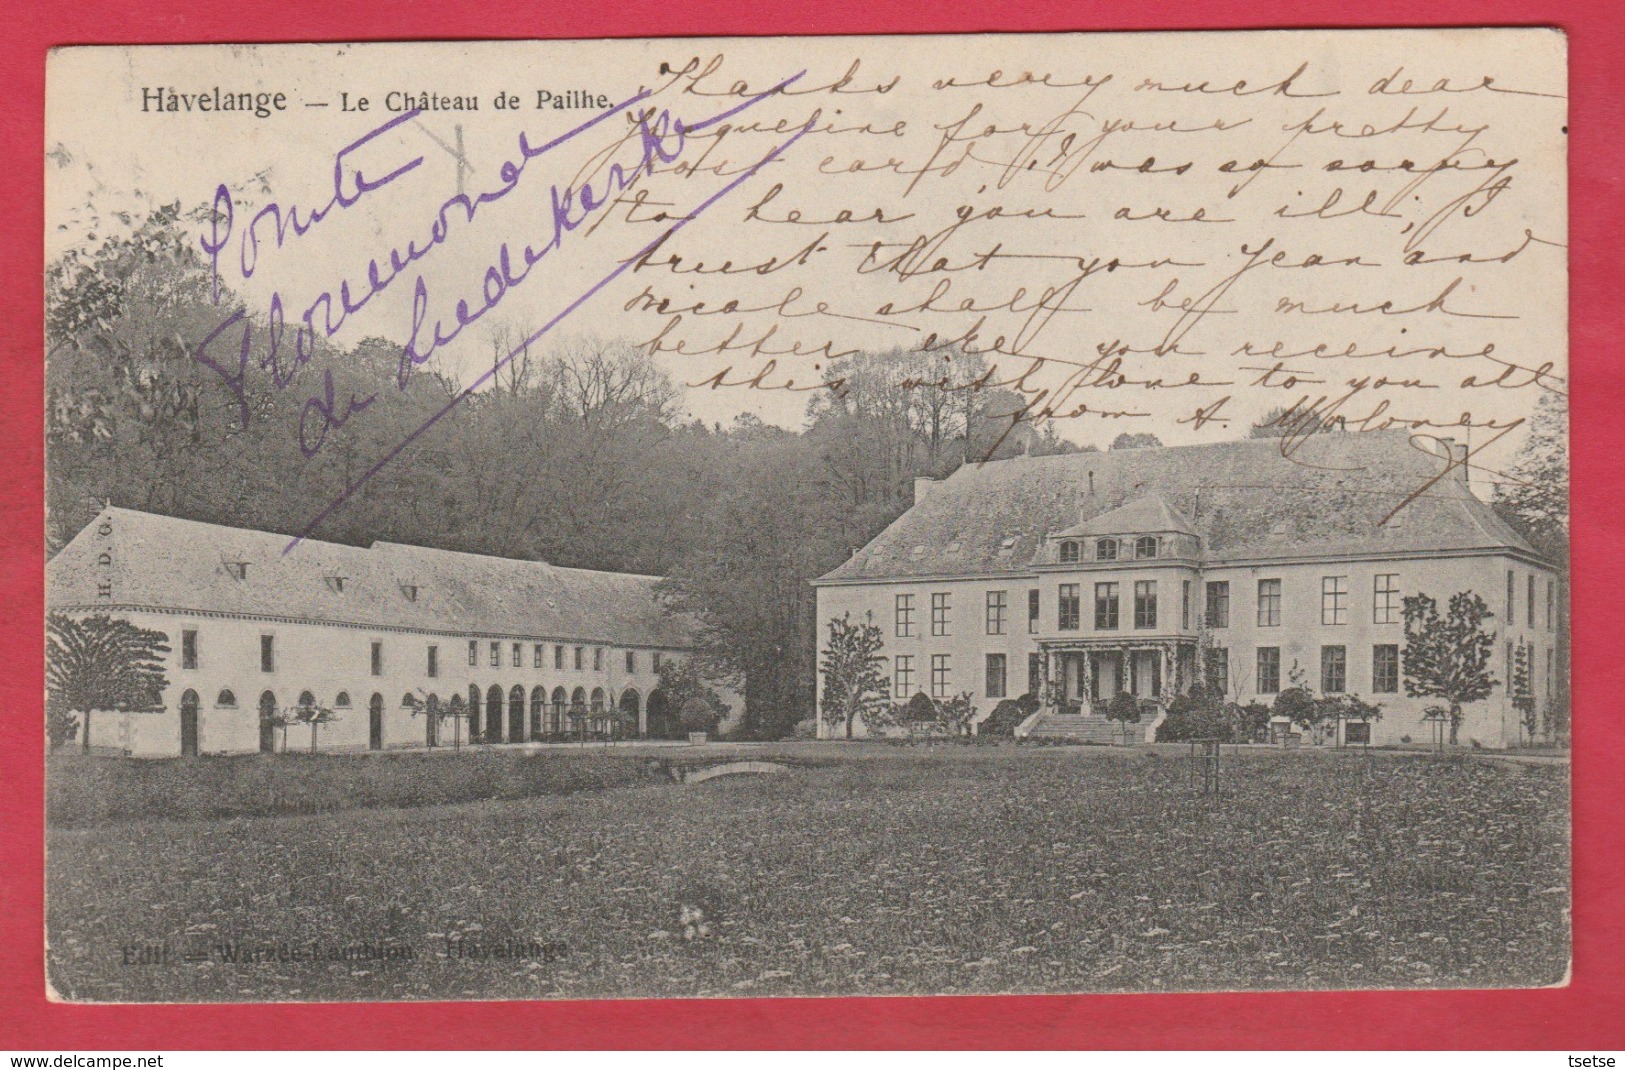 Havelange — Le Château de Pailhe.
Thanks very much dear
Jacqueline for your pretty
Post card, I was so sorry
to hear you are ill; I
trust that you Jean and
Nicole shall be much
better ere you receive
this, with love to you all
from A. Moloney
Comte
de
H. D. G.
Edit — Warzée-Lambion, Havelange
www.delcampe.net
tsetse